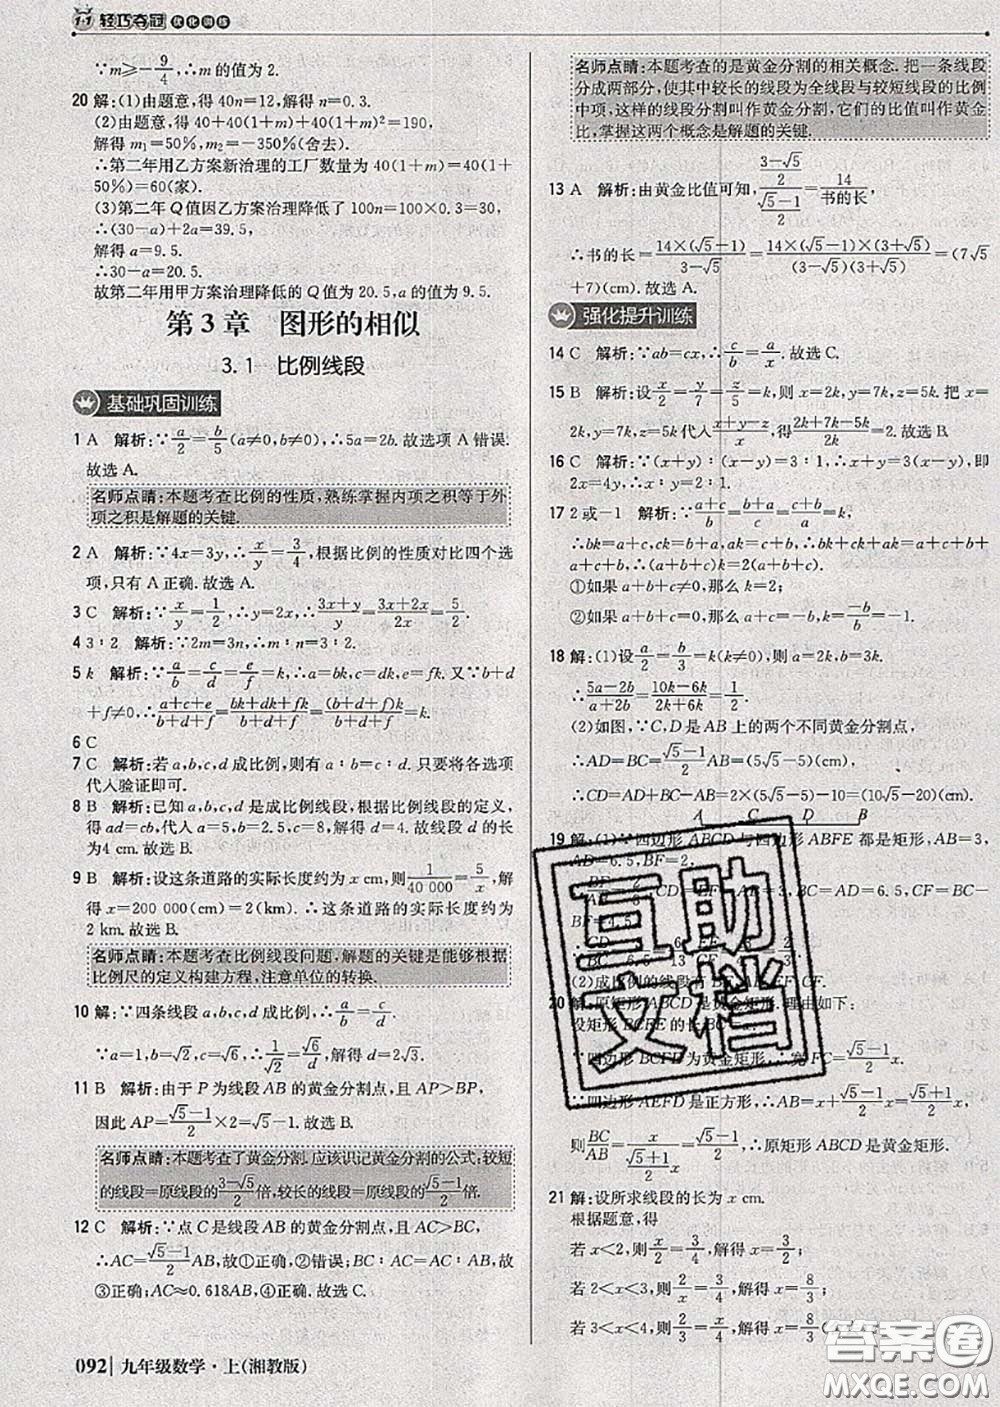 1+1 轻巧夺冠 优化训练
∵m≥-9/4,∴m的值为2.
20 解:(1)由题意,得40n=12,解得n=0.3.
(2)由题意,得40+40(1+m)+40(1+m)²=190,
解得m₁=50%,m₂=-350%(舍去).
∴第二年用乙方案新治理的工厂数量为40(1+m)=40(1+
50%)=60(家).
(3)第二年Q值因乙方案治理降低了100n=100×0.3=30,
∴(30-a)+2a=39.5,
解得a=9.5.
∴30-a=20.5.
故第二年用甲方案治理降低的Q值为20.5,a的值为9.5.
第3章 图形的相似
3.1 比例线段
基础巩固训练
1 A 解析:∵a/2=b/5(a≠0,b≠0),∴5a=2b.故选项A错误.
故选A.
名师点睛:本题考查比例的性质,熟练掌握内项之积等于外
项之积是解题的关键.
2 A 解析:∵4x=3y,∴x/y=3/4,根据比例的性质对比四个选
项,只有A正确.故选A.
3 C 解析:∵x/y=1/2,∴y=2x,∴(3x+y)/y=(3x+2x)/2x=5/2.
4 3∶2 解析:∵2m=3n,∴m∶n=3∶2.
5 k 解析:∵a/b=c/d=e/f=k,∴a=bk,c=dk,e=fk.又∵b+d
+f≠0,∴(a+c+e)/(b+d+f)=(bk+dk+fk)/(b+d+f)=(b+d+f)k/(b+d+f)=k.
6 C
7 C 解析:若a,b,c,d成比例,则有a∶b=c∶d.只要将各选项
代入验证即可.
8 B 解析:已知a,b,c,d是成比例线段,根据比例线段的定义,
得ad=cb,代入a=5,b=2.5,c=8,解得d=4.故线段d的长
为4 cm.故选B.
9 B 解析:设这条道路的实际长度约为x cm,则1/40 000=5/x,解
得x=200 000(cm)=2(km).∴这条道路的实际长度约为
2 km.故选B.
名师点睛:本题考查比例线段问题,解题的关键是能够根据
比例尺的定义构建方程,注意单位的转换.
10 解:∵四条线段a,b,c,d成比例,∴a/b=c/d.
∵a=1,b=√2,c=√6,∴1/√2=√6/d,解得d=2√3.
11 B 解析:由于P为线段AB的黄金分割点,且AP>BP,
因此AP=(√5-1)/2×2=√5-1.故选B.
名师点睛:本题考查了黄金分割.应该识记黄金分割的公式:较短
的线段=原线段的(3-√5)/2倍,较长的线段=原线段的(√5-1)/2倍.
12 C 解析:∵点C是线段AB的黄金分割点,且AC>BC,
∴AC=(√5-1)/2AB,故①正确;②错误;BC∶AC=AC∶AB,故
③正确;AC≈0.618AB,④正确.故选C.
092 九年级数学·上(湘教版)
名师点睛:本题考查的是黄金分割的相关概念.把一条线段
分成两部分,使其中较长的线段为全线段与较短线段的比例
中项,这样的线段分割叫作黄金分割,它们的比值叫作黄金
比,掌握这两个概念是解题的关键.
13 A 解析:由黄金比值可知,((3-√5)/2)/((√5-1)/2)=14/书的长,
∴书的长=14×(√5-1)/(3-√5)=14×(√5-1)×(3+√5)/((3-√5)(3+√5))=(7√5
+7)(cm).故选A.
强化提升训练
14 C 解析:∵ab=cx,∴c/b=a/x.故选C.
15 B 解析:设x/2=y/7=z/5=k,则x=2k,y=7k,z=5k.把x=
2k,y=7k,z=5k代入(x+y-z)/x,得(2k+7k-5k)/2k=2.故选B.
16 C 解析:∵(x+y)∶(x-y)=3∶1,∴x+y=3(x-y),即
2x=4y,∴x∶y=2∶1.故选C.
17 2或-1 解析:∵(a+c)/b=(b+c)/a=(a+b)/c=k,
∴bk=a+c,ak=b+c,ck=a+b,∴bk+ak+ck=a+c+b+
a+c+b,∴k(a+b+c)=2(a+b+c).
①如果a+b+c≠0,那么k=2;
②如果a+b+c=0,那么a+c=-b,∴k=-b/b=-1.
18 解:(1)设a/2=b/3=k(k≠0),则a=2k,b=3k.
∴(5a-2b)/(a+2b)=(10k-6k)/(2k+6k)=1/2.
(2)如图,∵C,D是AB上的两个不同黄金分割点,
∴AD=BC=(√5-1)/2AB=(5√5-5)(cm),
∴CD=AD+BC-AB=2×(5√5-5)-10=(10√5-20)(cm).
A C D B
19 解:(1)∵四边形ABCD与四边形ABFE都是矩形,AB=3,
AD=6.5,BF=2,
BC=AD=6.5,CF=BC-
BF=4.5,
(2)成比例的线段有
20 解:原矩形ABCD是黄金矩形.理由如下:
设矩形BCFE的长BC=x,
∵四边形BCFE为黄金矩形,∴宽FC=(√5-1)/2x.
∵四边形AEFD是正方形,∴AB=x+(√5-1)/2x=(√5+1)/2x,
则BC/AB=x/((√5+1)/2x)=(√5-1)/2.∴原矩形ABCD是黄金矩形.
21 解:设所求线段的长为x cm.
根据题意,得
若x<2,则x/2=2/3,解得x=4/3;
若2<x<3,则2/x=x/3,解得x=√6;
若3<x,则
互助文档
答案圈
MXQE.COM